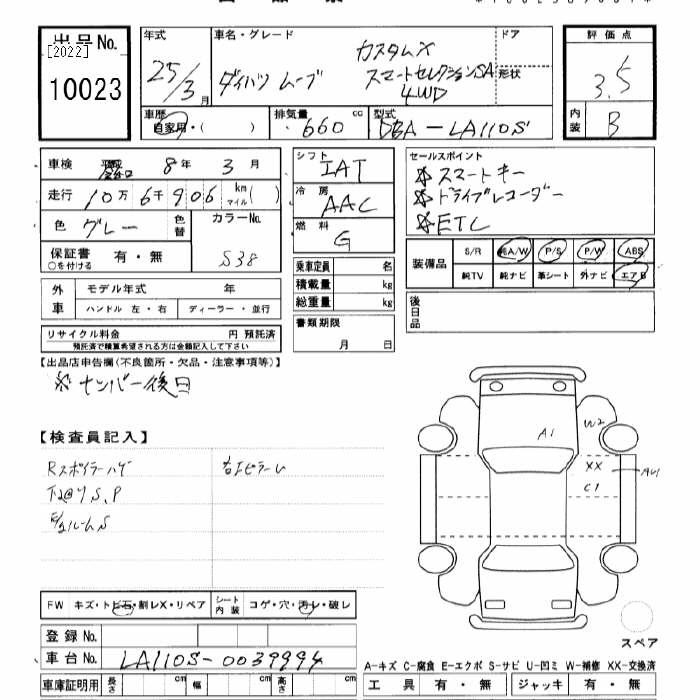 出品No.
[2022]
10023
年式
25/3月
車名・グレード
ダイハツ ムーブ
カスタムX
スマートセレクションSA
4WD
ドア
形状
評価点
3.5
内装
B
車歴
自家用・( )
排気量
660 cc
型式
DBA-LA110S
車検
8年 3月
走行 10万 6千 906 km マイル( )
色 グレー
色替
カラーNo.
S38
保証書 有・無
○を付ける
シフト
IAT
冷房
AAC
燃料
G
セールスポイント
※スマートキー
※ドライブレコーダー
※ETC
装備品
S/R 純A/W P/S P/W ABS
純TV 純ナビ 革シート 外ナビ エアB
乗車定員 名
積載量 kg
総重量 kg
後日品
外車
モデル年式 年
ハンドル 左・右 ディーラー・並行
書類期限
月 日
リサイクル料金 円 預託済
預託済で精算希望される方は金額記入して下さい
【出品店申告欄(不良箇所・欠品・注意事項等)】
※ナンバー後日
【検査員記入】
Rスポイラーハゲ
右Bピラーレ
ルームS
A1
W2
XX
C1
FW キズ・トビ石・割レX・リペア
シート内装 コゲ・穴・汚レ・破レ
登録No.
車台No. LA110S-0039994
スペア
A-キズ C-腐食 E-エクボ S-サビ U-凹ミ W-補修 XX-交換済
車庫証明用 長さ cm 幅 cm 高さ cm
工具 有・無 ジャッキ 有・無